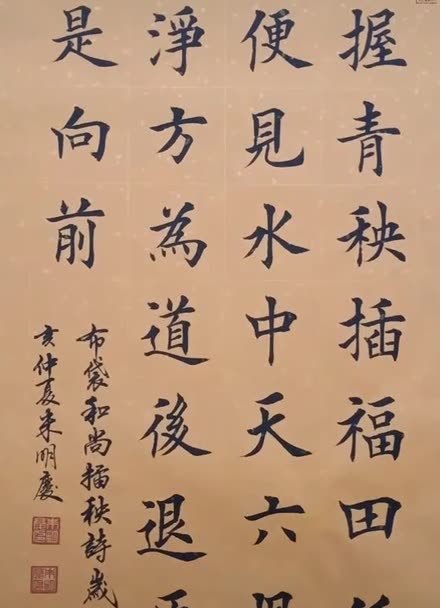 握青秧插福田
便見水中天六
淨方為道後退
是向前
布袋和尚插秧詩歲
亥仲夏明慶